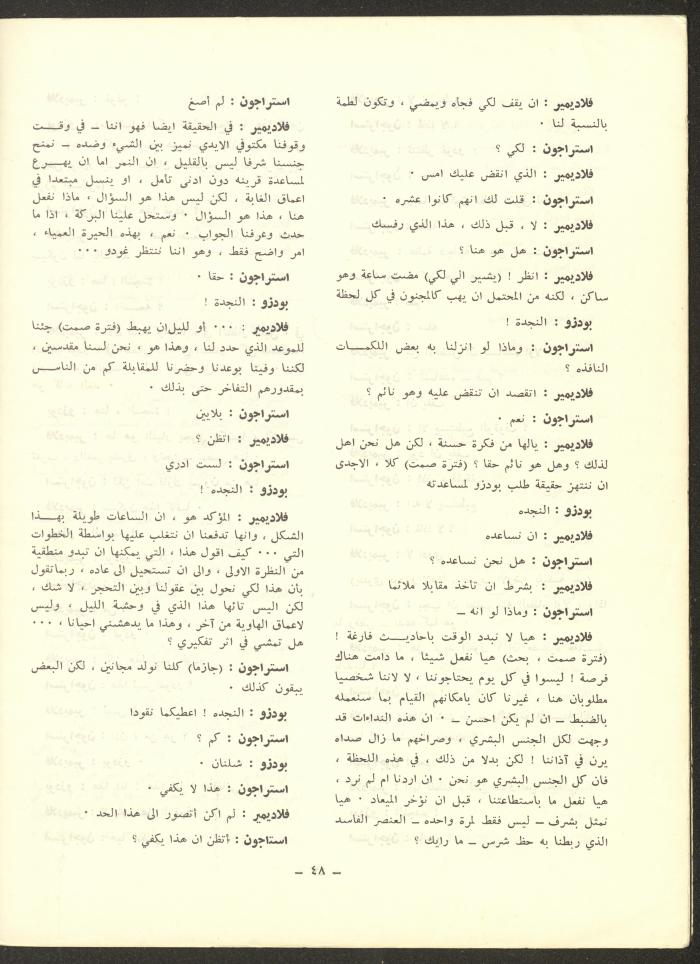 فلاديمير : ان يقف لكي فجأه ويمضي ، وتكون لطمة
بالنسبة لنا ٠
استراجون : لكي ؟
فلاديمير : الذي انقض عليك امس ٠
استراجون : قلت لك انهم كانوا عشره ٠
فلاديمير : لا ، قبل ذلك ، هذا الذي رفسك
استراجون : هل هو هنا ؟
فلاديمير : انظر ! (يشير الي لكي) مضت ساعة وهو
ساكن ، لكنه من المحتمل ان يهب كالمجنون في كل لحظة
بودزو : النجدة !
استراجون : وماذا لو انزلنا به بعض اللكمـــات
النافذه ؟
فلاديمير : اتقصد ان تنقض عليه وهو نائم ؟
استراجون : نعم ٠
فلاديمير : يالها من فكرة حسنة ، لكن هل نحن اهل
لذلك ؟ وهل هو نائم حقا ؟ (فترة صمت) كلا ، الاجدى
ان ننتهز حقيقة طلب بودزو لمساعدته
بودزو : النجده
فلاديمير : ان نساعده
استراجون : هل نحن نساعده ؟
فلاديمير : بشرط ان تأخذ مقابلا ملائما
استراجون : وماذا لو انه ــ
فلاديمير : هيا لا نبدد الوقت باحاديــث فارغة !
(فترة صمت ، بحث) هيا نفعل شيئا ، ما دامت هناك
فرصة ! ليسوا في كل يوم يحتاجوننا ، لا لاننا شخصيا
مطلوبان هنا ، غيرنا كان بامكانهم القيام بما سنعمله
بالضبط ــ ان لم يكن احسن ــ ٠ ان هذه النداءات قد
وجهت لكل الجنس البشري ، وصراخهم ما زال صداه
يرن في آذاننا ! لكن بدلا من ذلك ، في هذه اللحظة ،
فان كل الجنس البشري هو نحن ٠ ان اردنا ام لم نرد ،
هيا نفعل ما باستطاعتنا ، قبل ان نؤخر الميعاد ٠ هيا
نمثل بشرف ــ ليس فقط لمرة واحده ــ العنصر الفاسد
الذي ربطنا به حظ شرس ــ ما رايك ؟
استراجون : لم أصغ
فلاديمير : في الحقيقة ايضا فهو اننا ــ في وقــت
وقوفنا مكتوفي الايدي نميز بين الشيء وضده ــ نمنح
جنسنا شرفا ليس بالقليل ، ان النمر اما ان يهــرع
لمساعدة قرينه دون ادنى تأمل ، او ينسل مبتعدا في
اعماق الغابة ، لكن ليس هذا هو السؤال ، ماذا نفعل
هنا ، هذا هو السؤال ٠ وستحل علينا البركة ، اذا ما
حدث وعرفنا الجواب ٠ نعم ، بهذه الحيرة العمياء ،
امر واضح فقط ، وهو اننا ننتظر غودو ٠٠٠
استراجون : حقا ٠
بودزو : النجدة !
فلاديمير : ٠٠٠ أو لليل‌ان يهبط (فترة صمت) جئنا
للموعد الذي حدد لنا ، وهذا هو ، نحن لسنا مقدسين ،
لكننا وفينا بوعدنا وحضرنا للمقابلة كم من الناســس
بمقدورهم التفاخر حتى بذلك ٠
استراجون : بلايين
فلاديمير : اتظن ؟
استراجون : لست ادري
بودزو : النجده !
فلاديمير : المؤكد هو ، ان الساعات طويلة بهــذا
الشكل ، وانها تدفعنا ان نتغلب عليها بواسطة الخطوات
التي ٠٠٠ كيف اقول هذا ، التي يمكنها ان تبدو منطقية
من النظرة الاولى ، والى ان تستحيل الى عاده ، ربماتقول
بأن هذا لكي نحول بين عقولنا وبين التحجر ، لا شك ،
لكن اليس تائها هذا الذي في وحشة الليل ، وليس
لاعماق الهاوية من آخر ، وهذا ما يدهشني احيانا ، ٠٠٠
هل تمشي في اثر تفكيري ؟
استراجون : (جازما) كلنا نولد مجانين ، لكن البعض
يبقون كذلك ٠
بودزو : النجده ! اعطيكما نقودا
استراجون : كم ؟
بودزو : شلنان ٠
استراجون : هذا لا يكفي ٠
فلاديمير : لم اكن أتصور الى هذا الحد ٠
استاجون : أتظن ان هذا يكفي ؟
ــ ٤٨ ــ